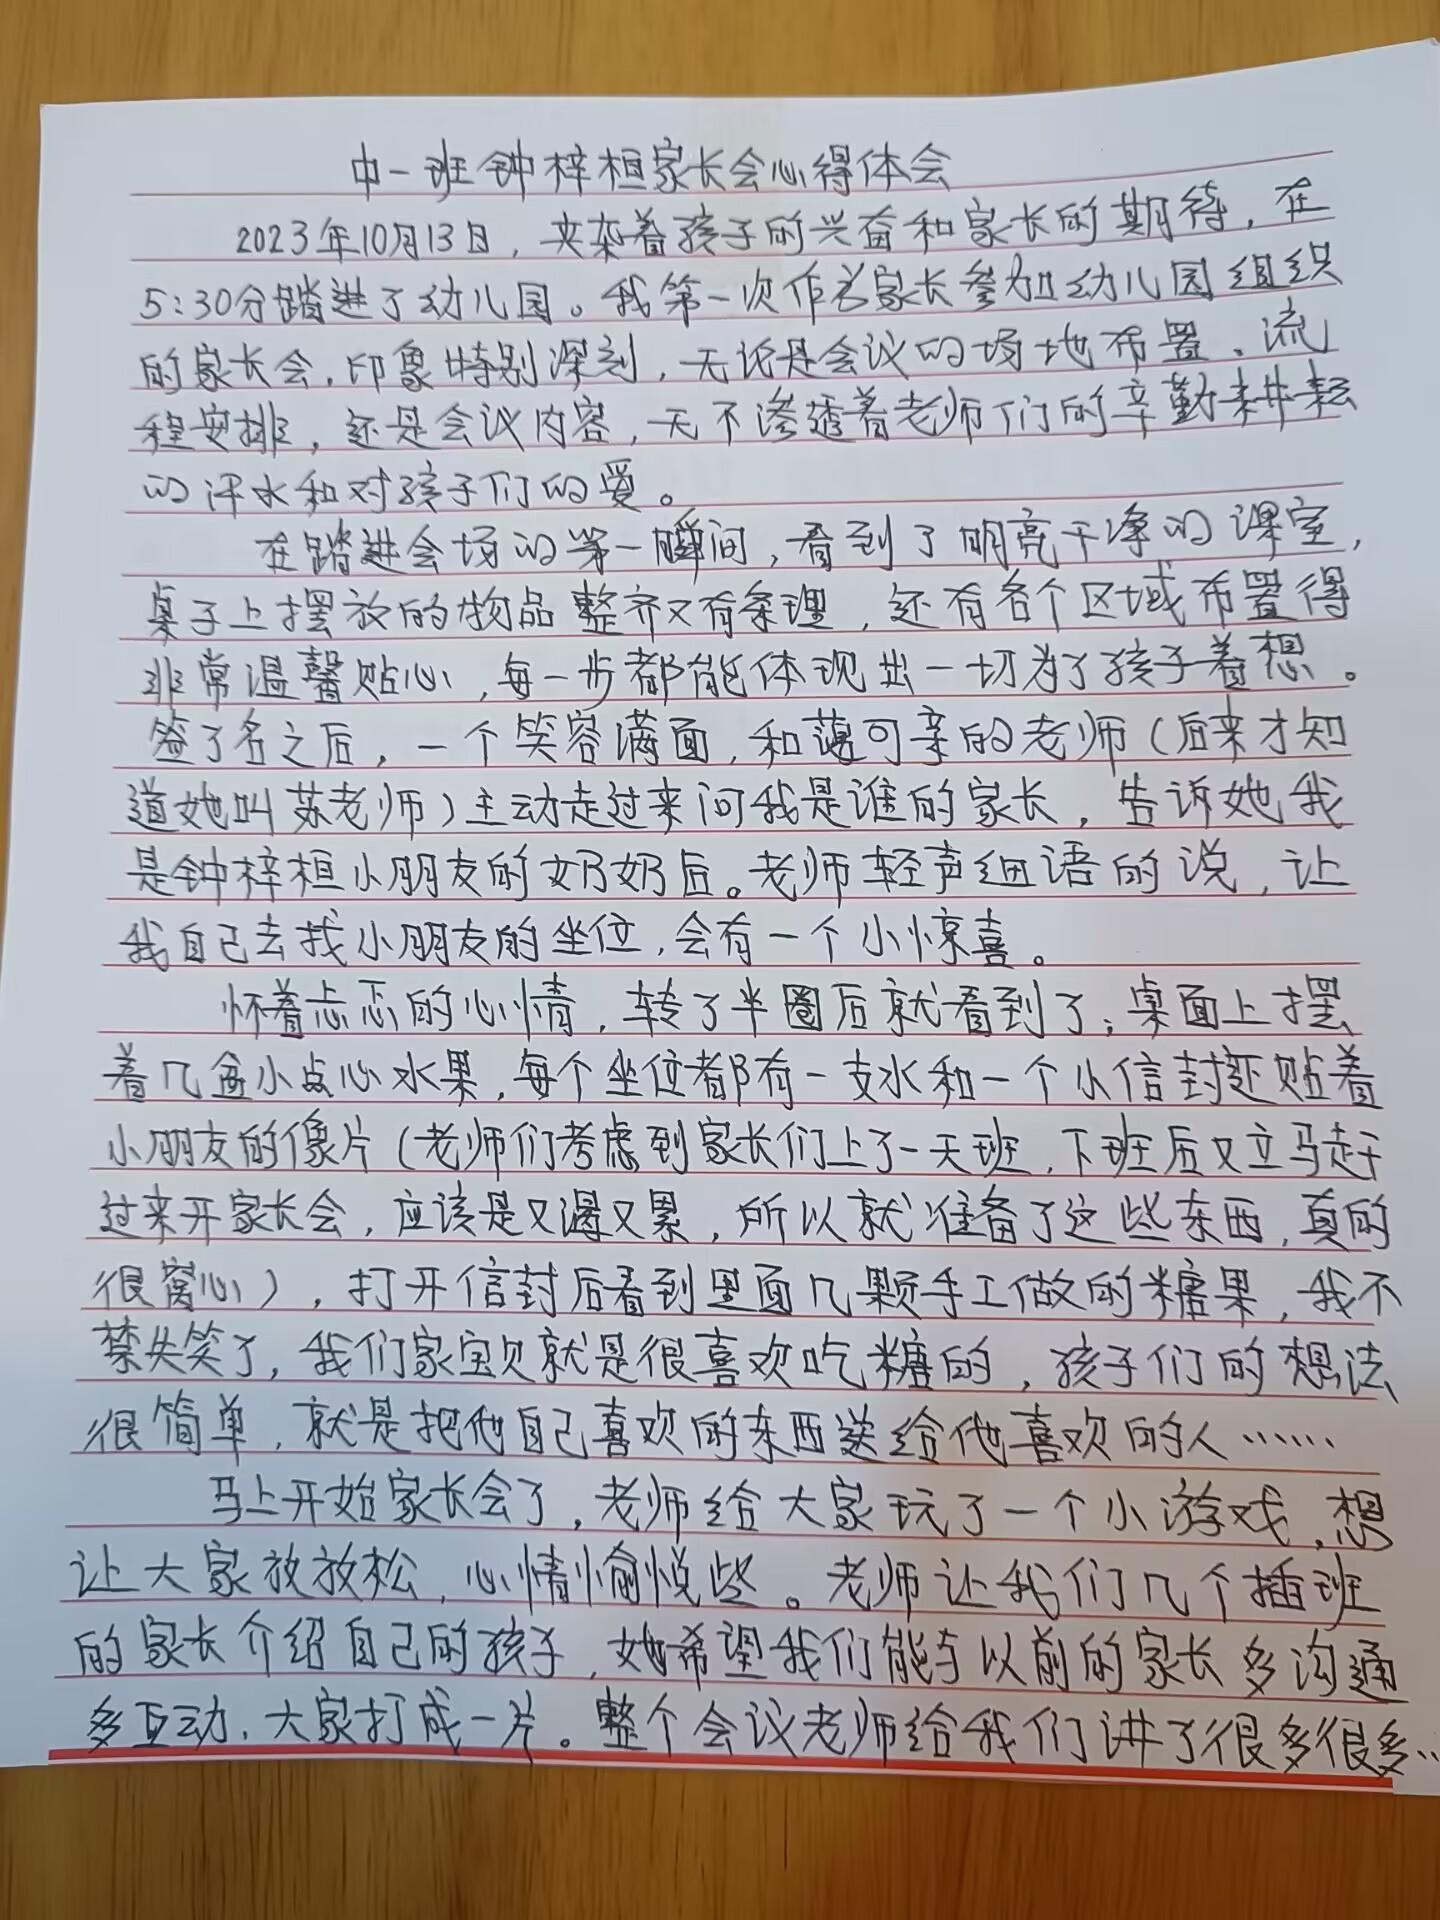 中一班钟梓桓家长会心得体会
2023年10月13日，夹杂着孩子的兴奋和家长的期待，在
5:30分踏进了幼儿园。我第一次作为家长参加幼儿园组织
的家长会，印象特别深刻，无论是会议的场地布置、流
程安排，还是会议内容，无不渗透着老师们的辛勤耕耘
的汗水和对孩子们的爱。
在踏进会场的第一瞬间，看到了明亮干净的课室，
桌子上摆放的物品整齐又有条理，还有各个区域布置得
非常温馨贴心，每一步都能体现出一切为了孩子着想。
签了名之后，一个笑容满面，和蔼可亲的老师（后来才知
道她叫苏老师）主动走过来问我是谁的家长，告诉她我
是钟梓桓小朋友的奶奶后。老师轻声细语的说，让
我自己去找小朋友的坐位，会有一个小惊喜。
怀着忐忑的心情，转了半圈后就看到了，桌面上摆
着几盆小点心水果，每个坐位都有一支水和一个小信封还贴着
小朋友的像片（老师们考虑到家长们上了一天班，下班后又立马赶
过来开家长会，应该是又渴又累，所以就准备了这些东西，真的
很窝心），打开信封后看到里面几颗手工做的糖果，我不
禁失笑了，我们家宝贝就是很喜欢吃糖的，孩子们的想法
很简单，就是把他自己喜欢的东西送给他喜欢的人……
马上开始家长会了，老师给大家玩了一个小游戏，想
让大家放放松，心情愉悦些。老师让我们几个插班
的家长介绍自己的孩子，她希望我们能与以前的家长多沟通
多互动，大家打成一片。整个会议老师给我们讲了很多很多…